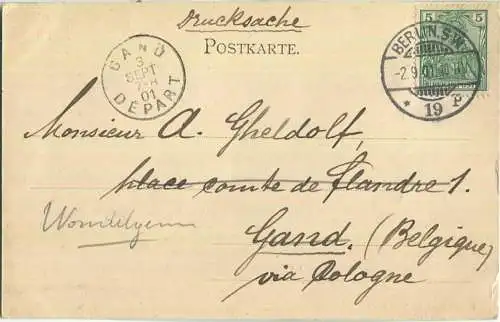 Drucksache
POSTKARTE.
GAND
3
SEPT
7-8
01
DÉPART
BERLIN. S.W.
-2.9.01.
* 19 P.
5 5
Monsieur A. Gheldolf,
place comte de Flandre 1.
Wondelgem
Gand. (Belgique)
via Cologne